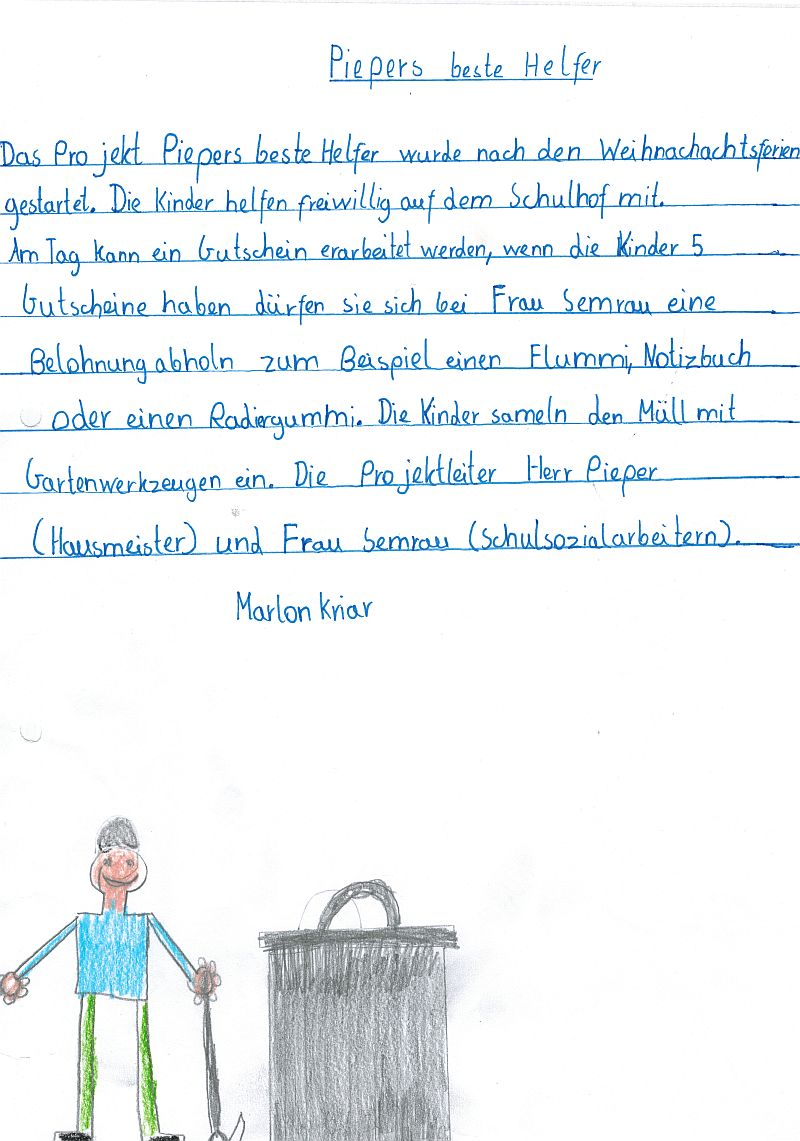 Piepers beste Helfer
Das Projekt Piepers beste Helfer wurde nach den Weihnachachtsferien
gestartet. Die Kinder helfen freiwillig auf dem Schulhof mit.
Am Tag kann ein Gutschein erarbeitet werden, wenn die Kinder 5
Gutscheine haben dürfen sie sich bei Frau Semrau eine
Belohnung abholn zum Beispiel einen Flummi, Notizbuch
oder einen Radiergummi. Die Kinder sameln den Müll mit
Gartenwerkzeugen ein. Die Projektleiter Herr Pieper
(Hausmeister) und Frau Semrau (Schulsozialarbeitern).
Marlon Kriar